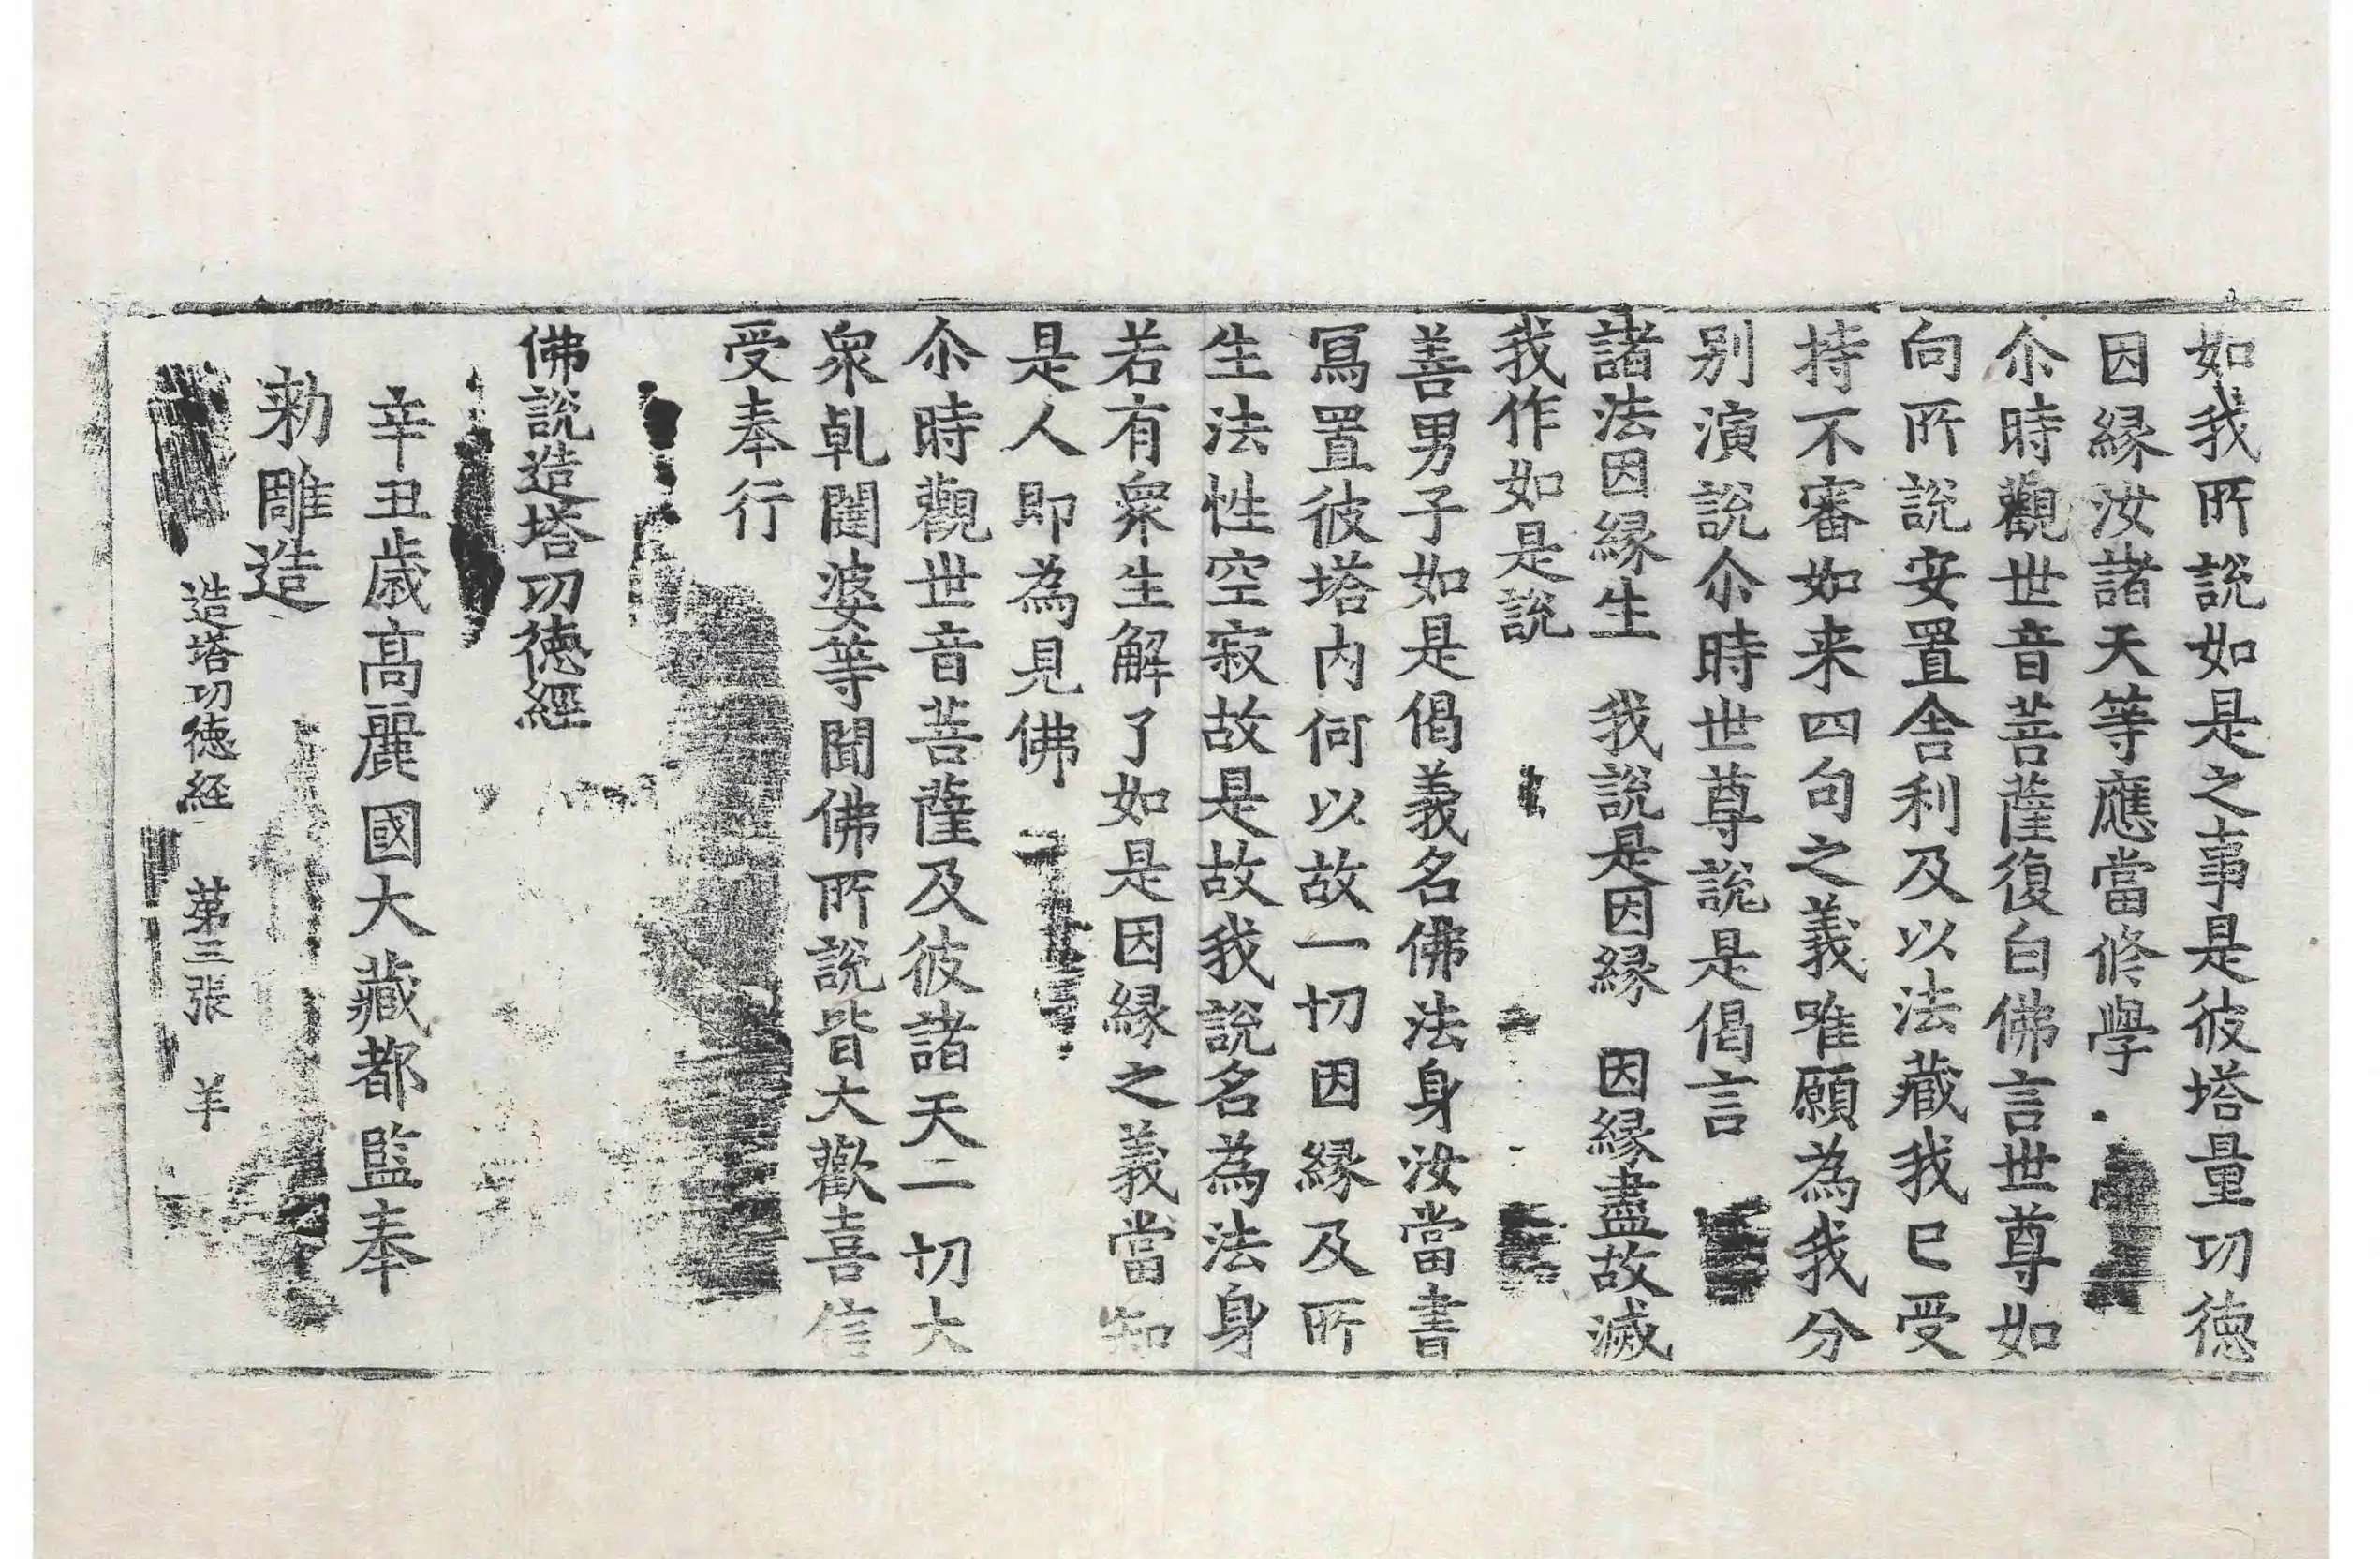 如我所說如是之事是彼塔量功德
因緣汝諸天等應當修學
尒時觀世音菩薩復白佛言世尊如
向所說安置舍利及以法藏我已受
持不審如来四句之義唯願為我分
別演說尒時世尊說是偈言
諸法因緣生　我說是因緣　因緣盡故滅
我作如是說
善男子如是偈義名佛法身汝當書
寫置彼塔内何以故一切因緣及所
生法性空寂故是故我說名為法身
若有衆生解了如是因緣之義當知
是人即為見佛
尒時觀世音菩薩及彼諸天一切大
衆乹闥婆等聞佛所說皆大歡喜信
受奉行
佛說造塔功德經
辛丑歳高麗國大藏都監奉
勑雕造
造塔功德経　第三張　羊